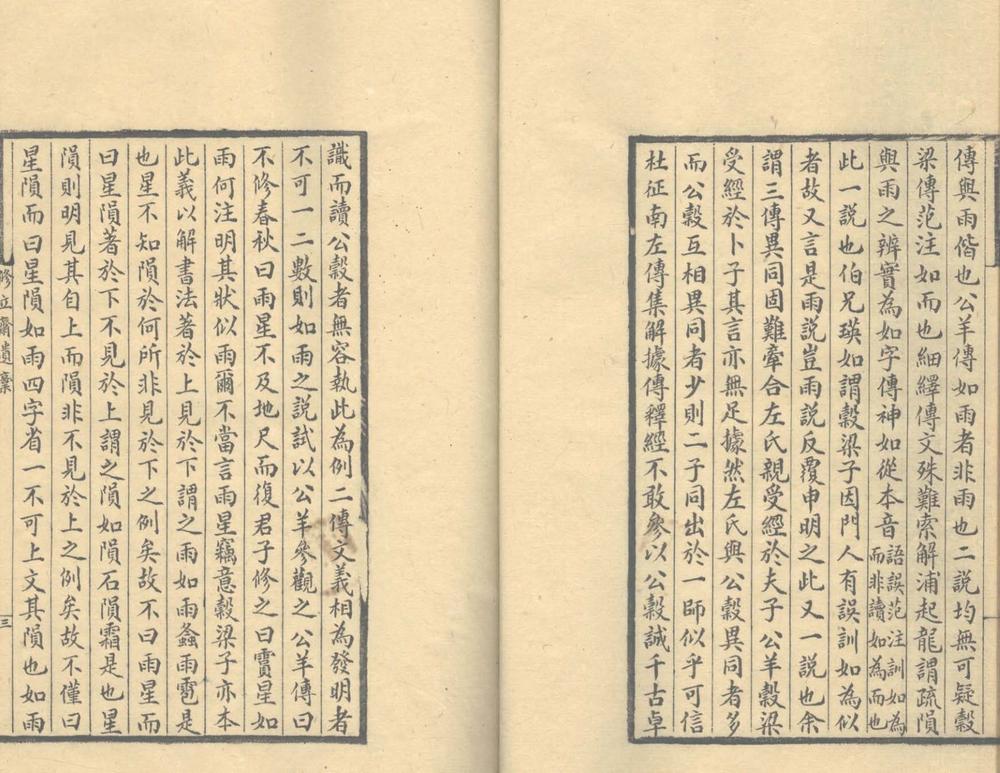 傳與雨偕也公羊傳如雨者非雨也二說均無可疑穀
梁傳范注如而也細繹傳文殊難索解浦起龍謂疏隕
與雨之辨實為如字傳神如從本音語誤范注訓如為而非讀如為而也
此一說也伯兄瑛如謂穀梁子因門人有誤訓如為似
者故又言是雨說豈雨說反覆申明之此又一說也余
謂三傳異同固難牽合左氏親受經於夫子公羊穀梁
受經於卜子其言亦無足據然左氏與公穀異同者多
而公穀互相異同者少則二子同出於一師似乎可信
杜征南左傳集解據傳釋經不敢參以公穀誠千古卓
識而讀公穀者無容執此為例二傳文義相為發明者
不可一二數則如雨之說試以公羊參觀之公羊傳曰
不修春秋曰雨星不及地尺而復君子修之曰霣星如
雨何注明其狀似雨爾不當言雨星竊意穀梁子亦本
此義以解書法著於上見於下謂之雨如雨螽雨雹是
也星不知隕於何所非見於下之例矣故不曰雨星而
曰星隕著於下不見於上謂之隕如隕石隕霜是也星
隕則明見其自上而隕非不見於上之例矣故不僅曰
星隕而曰星隕如雨四字省一不可上文其隕也如雨
修立齋遺稾
三